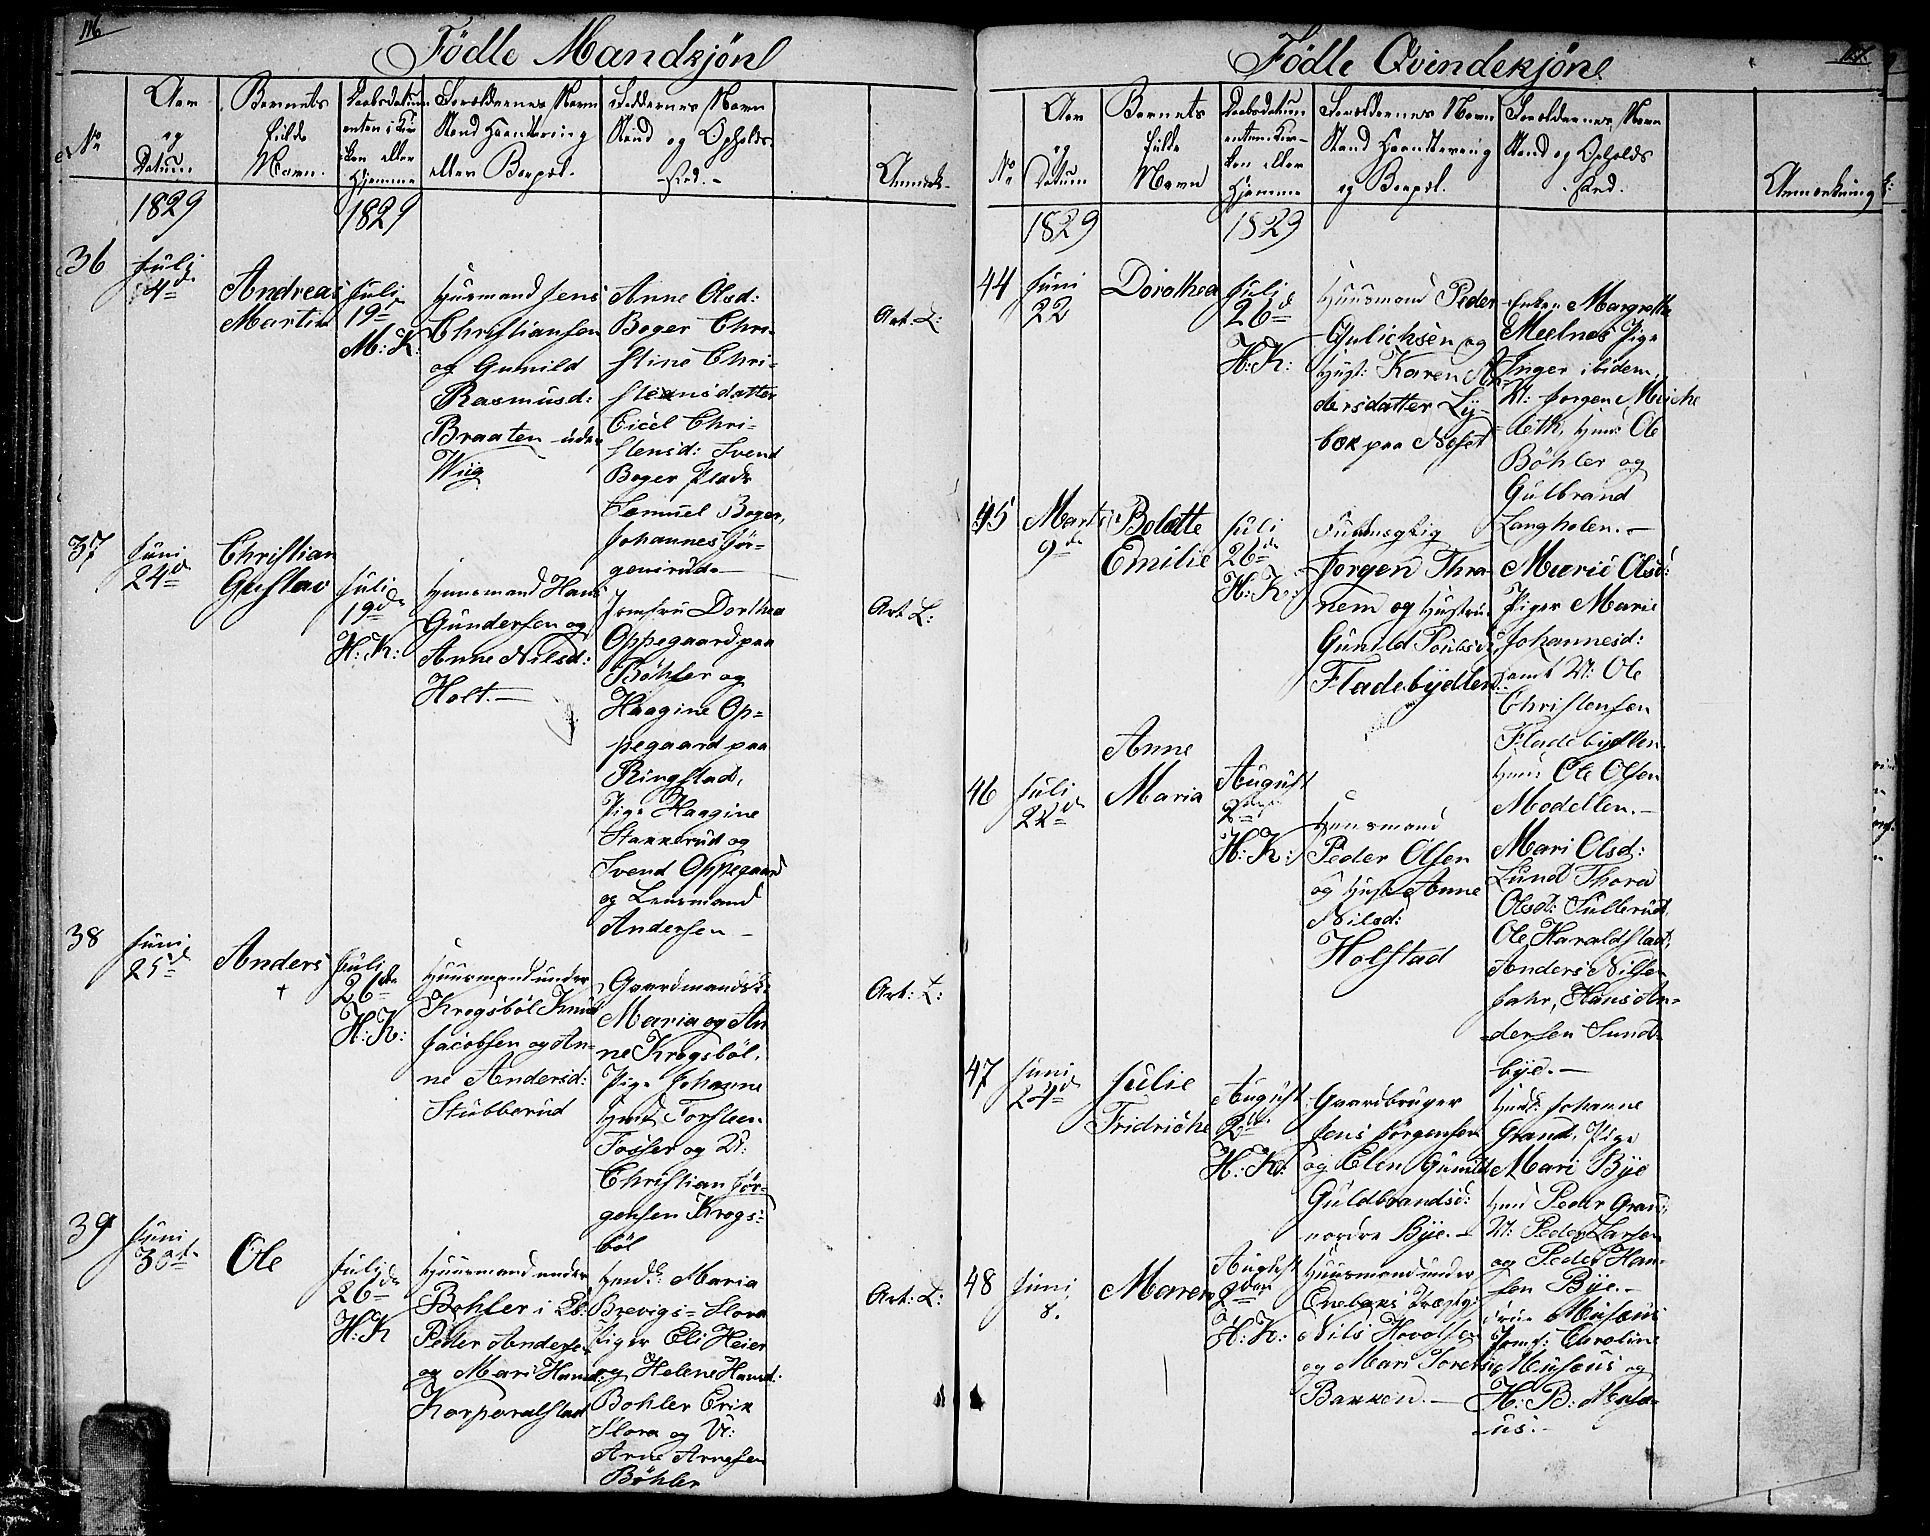 116
Födte Mandkjön
No
Aar
og
Datum.
Barnets
fulde
Navn.
Daabsdatum
enten i Kir
ken eller
Hjemme
Forældrenes Navn
Stand Haandtering
eller Bopæl.
Faddernes Navn
Stand og Opholds
Sted.
Anmærk-
1829
1829
36
Juli
4d
Andreas
Martin
Juli
19
M: K:
Huusmand Jens
Christiansen
og Gunild
Rasmusd:
Braaten under
Wiig
Anne Olsd:
Boger Chri-
stine Chri-
stensdatter
Cicel Chri-
stensd: Svend
Boger Plads
Samuel Boger,
Johannes Jör-
gensrud.
Art. L:
37
Juni
24d
Christian
Gustav
Juli
19de
H: K:
Huusmand Hans
Gundersen og
Anne Nilsd:
Holt.
Jomfru Dorthea
Oppegaard paa
Böhler og
Haagine Op-
pegaard paa
Ringstad,
Pige Haagine
Stakkerud og
Svend Oppegaard
og Lensmand
Andersen
Art L:
38
Juni
25d
Anders
+
Juli
26de
H: K:
Huusmand under
Krogsböl Knud
Jacobsen og An-
ne Andersd:
Stubberud
Gaardmands K:
Maria og An
ne Krogsböl,
Pige Johanne
Torsteen
Fosser og U:
Christian Jör-
gensen Krogs-
böl
Art: L:
39
Juni
30
Ole
Juli
26de
H: K
Huusmand under
Bohler i Eb:
Peder Anderse-
og Mari Hansd:
Korporalstad
Maria
Brevigs-Flora
Piger Eli Heier
og Helene Hansd:
Bohler Erik
Flora og U:
Arne Arnesen
Böhler
Art: L:
Födte Qvindekjön
No
Aar
og
Datum
Barnets
fulde
Navn
Daabsdatum
enten i Kir-
ken eller
Hjemme
Forældrenes Navn
Stand Haandtering
og Bopæl.
Forældrenes Navn
Stand og Opholds
Sted.
Anmærkning
1829
1829
44
Juni
22
Dorothea
Juli
26de
H: K:
Huusmand Peder
Gulichsen og
Hust: Karen An
dersdatter Ly-
bek paa Neset
Enken Margrethe
Meelnes Pige
Inger ibidem,
U: Jorgen
Ole
Böhler og
Gulbrand
Langholen.
45
Martii
9de
Bolette
Emilie
Juli
26de
H: K:
Jorgen Thra
nem og Hustru
Gunild Poulsd:
Fladebydlen
Marie Olsd:
Piger Marie
Johannesd:
samt U: Ole
Christensen
Fladebydlen
Ole Olsen
Modellen.
46
Juli
22d
Anne
Maria
August
2den
H: K:
Huusmand
Peder Olsen
og Hust: Anne
Nilsd:
Holstad
Mari Olsd:
Lund Thora
Olsd: Sullerud,
Ole Haraldstad,
Anders Nilsen
Jahr, Hans An-
dersen Sund-
bye.
47
Juni
24d
Julie
Fridriche
August
2den
H: K:
Gaardbruger
Jens Jörgensen
og Elen Gunild
Guldbrandsd:
nordre Bye.
Johanne
Grand, Pige
Mari Bye
Peder Grand,
U: Peder Larsen
og Peder Han-
sen Bye.
48
Juni
8.
Maren
August
2den
H: K:
Huusmand under
Enebaks Præstg:
Nils Hovelsen
og Mari Torersd:
Bakken.
Musæus
Jomf: Caroline
Musæus og
H: B: Musæ-
us.